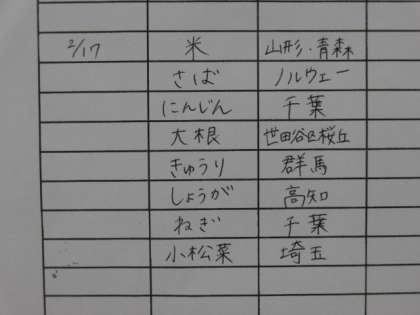 2/17 米 山形・青森
さば ノルウェー
にんじん 千葉
大根 世田谷区桜丘
きゅうり 群馬
しょうが 高知
ねぎ 千葉
小松菜 埼玉